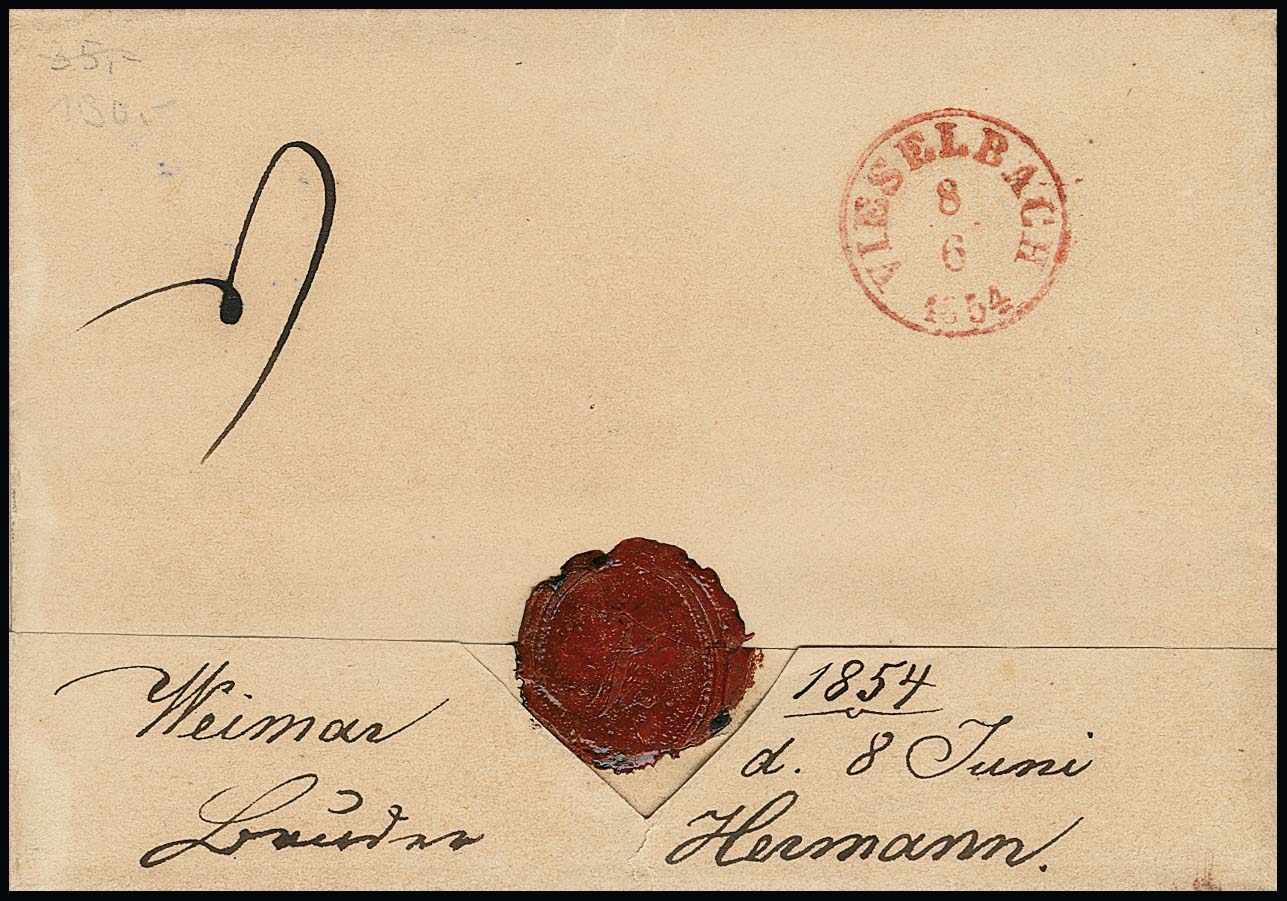 35,-
180,-
VIESELBACH
8
6
1854
Weimar
1854
d. 8 Juni
Bruder Hermann.